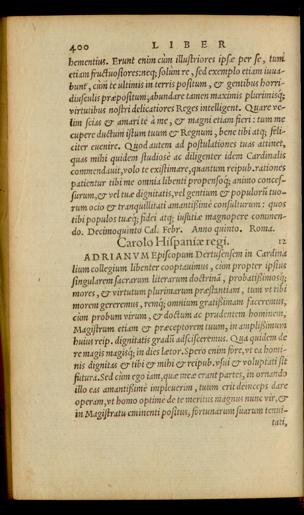 400 LIBER
hementius. Erunt enim cùm illustriores ipsæ per se, tum
etiam fructuosiores: neq; solùm re, sed exemplo etiam iuua-
bunt, cùm te ultimis in terris positum, & gentibus horri-
diusculis præpositum, abundare tanen maximis plurimisq;
virtutibus nostri delicatiores Reges intelligent. Quare ve-
lim scias & amari te à me, & magni etiam fieri: tum me
cupere ductum istum tuum & Regnum, bene tibi atq; feli-
citer euenire. Quod autem ad postulationes tuas attinet,
quas mihi quidem studiosè ac diligenter idem Cardinalis
commendauit, volo te existimare, quantum reipub. rationes
patientur tibi me omnia libenti propensoq; animo conces-
surum, & vel tuæ dignitatis, vel gentium & populorũ tuo-
rum ocio & tranquillitati amantißimè consulturum: quos
tibi populos tuæq; fidei atq; iustitiæ magnopere commen-
do. Decimoquinto Cal. Febr. Anno quinto. Roma.
Carolo Hispaniæ regi. 12
ADRIANVM Episcopum Dertusensem in Cardina
lium collegium libenter cooptauimus, cùm propter ipsius
singularem sacrarum literarum doctrinã, probatißimosq;
mores, & virtutum plurimarum præstantiam, tum vt tibi
morem gereremus, remq; omnium gratißimam faceremus,
cùm probum virum, & doctum ac prudentem hominem,
Magistrum etiam & præceptorem tuum, in amplißimum
huius reip. dignitatis gradũ adscisceremus. Qua quidem de
re magis magisq; in dies lætor. Spero enim fore, vt ea homi-
nis dignitas & tibi & mihi & reipub. vsui & voluptati sit
futura. Sed cùm ego iam, quæ meæ erant partes, in ornando
illo eas amantißimè impleuerim, tuum erit deinceps dare
operam, vt homo optime de te meritus magnus nunc vir, &
in Magistratu eminenti positus, fortunarum suarum tenui-
tati,